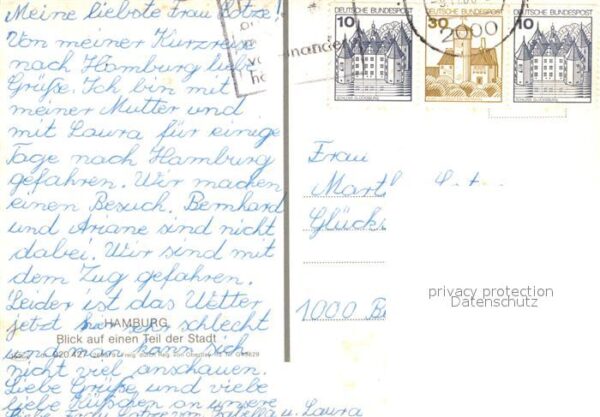 Meine liebste Frau Lotze!
Von meiner Kurzreise
nach Hamburg liebe
Grüße. Ich bin mit
meiner Mutter und
mit Laura für einige
Tage nach Hamburg
gefahren. Wir machen
einen Besuch. Bernhard
und Ariane sind nicht
dabei. Wir sind mit
dem Zug gefahren.
Leider ist das Wetter
jetzt hier sehr schlecht
und man kann sich
nicht viel anschauen.
Liebe Grüße und viele
liebe Küßchen an unsere
liebe Frau Lotze von Isabella u. Laura
HAMBURG
Blick auf einen Teil der Stadt
10 DEUTSCHE BUNDESPOST
SCHLOSS GLÜCKSBURG
30 DEUTSCHE BUNDESPOST
10 DEUTSCHE BUNDESPOST
SCHLOSS GLÜCKSBURG
2000
Frau
Mart
Glück
1000 Be
privacy protection
Datenschutz